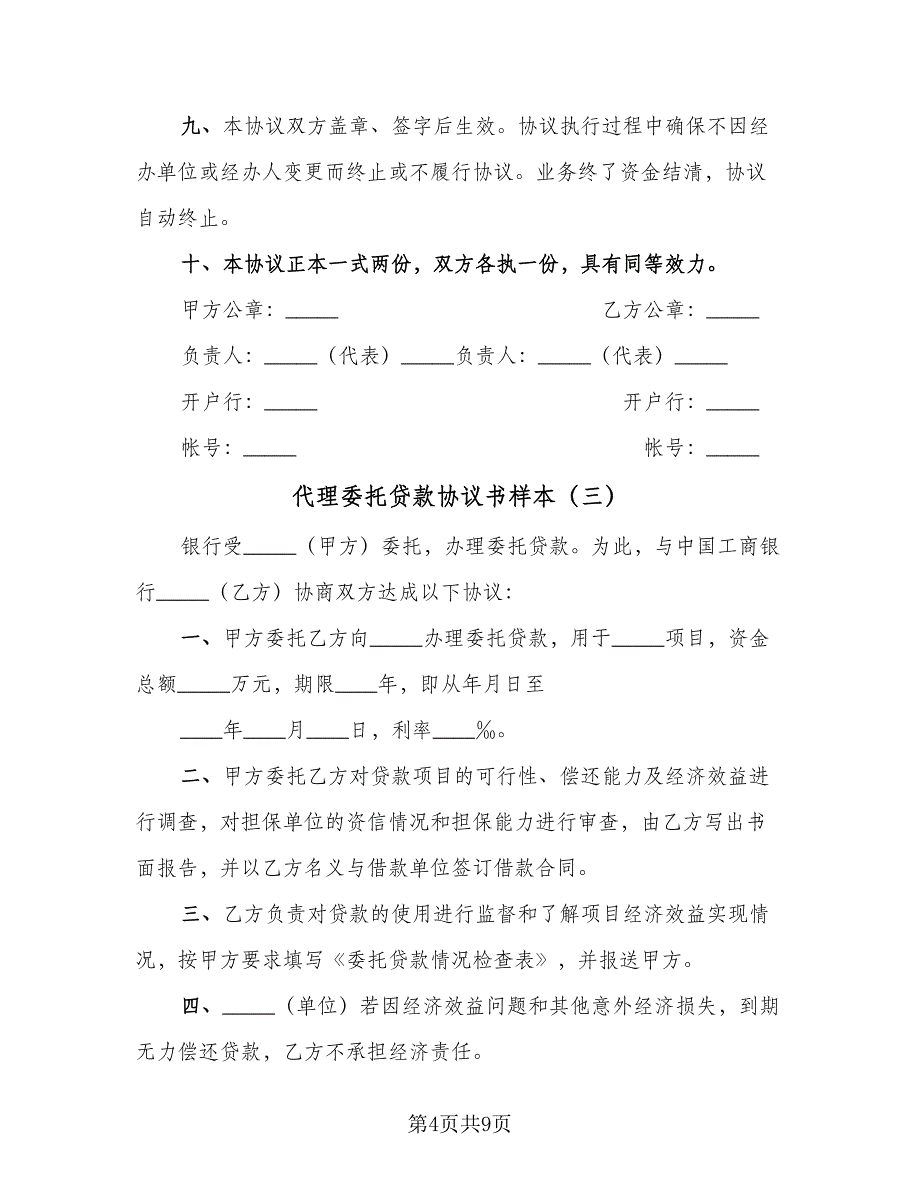 九、本协议双方盖章、签字后生效。协议执行过程中确保不因经
办单位或经办人变更而终止或不履行协议。业务终了资金结清，协议
自动终止。
十、本协议正本一式两份，双方各执一份，具有同等效力。
甲方公章：_____ 乙方公章：_____
负责人：_____（代表）_____负责人：_____（代表）_____
开户行：_____ 开户行：_____
帐号：_____ 帐号：_____
代理委托贷款协议书样本（三）
银行受_____（甲方）委托，办理委托贷款。为此，与中国工商银
行_____（乙方）协商双方达成以下协议：
一、甲方委托乙方向_____办理委托贷款，用于_____项目，资金
总额_____万元，期限____年，即从年月日至
____年____月____日，利率____‰。
二、甲方委托乙方对贷款项目的可行性、偿还能力及经济效益进
行调查，对担保单位的资信情况和担保能力进行审查，由乙方写出书
面报告，并以乙方名义与借款单位签订借款合同。
三、乙方负责对贷款的使用进行监督和了解项目经济效益实现情
况，按甲方要求填写《委托贷款情况检查表》，并报送甲方。
四、_____（单位）若因经济效益问题和其他意外经济损失，到期
无力偿还贷款，乙方不承担经济责任。
第4页共9页